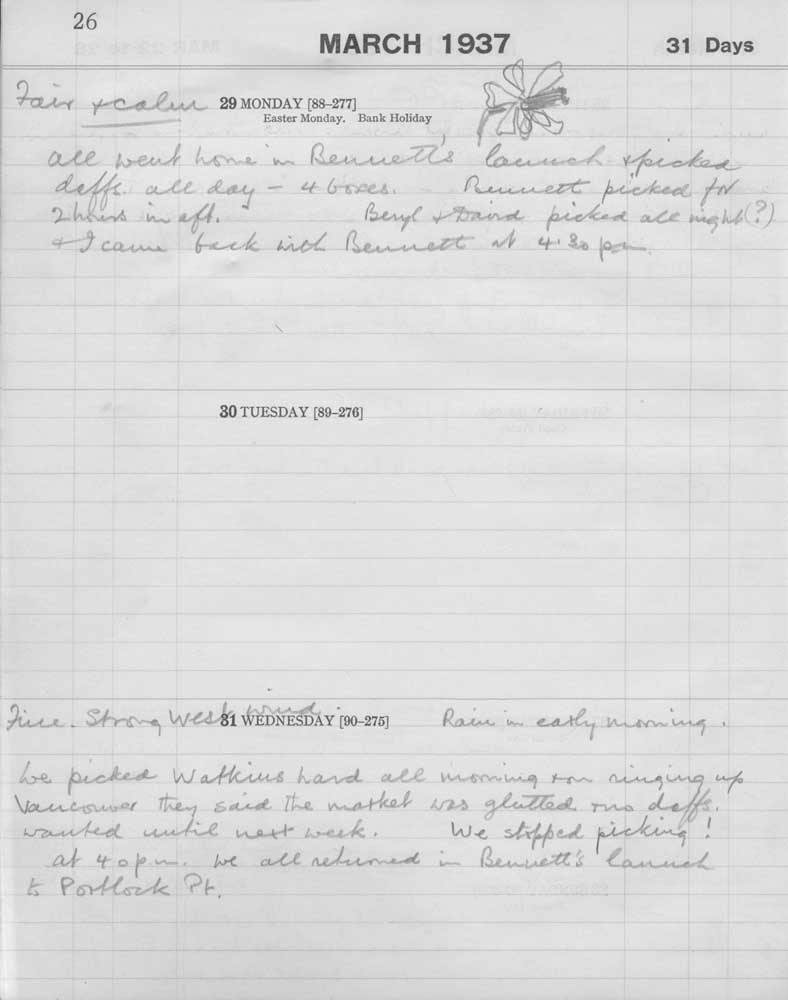 26
MARCH 1937
31 Days
Fair & calm
29 MONDAY [88–277]
Easter Monday. Bank Holiday
All went home in Bennett's launch & picked
daffs all day – 4 boxes. Bennett picked for
2 hours in aft. Beryl & David picked all night (?)
& I came back with Bennett at 4.30 pm.
30 TUESDAY [89–276]
Fine. Strong West wind.
31 WEDNESDAY [90–275]
Rain in early morning.
We picked Watkins hard all morning & on ringing up
Vancouver they said the market was glutted & no daffs.
wanted until next week. We stopped picking!
at 4 o pm. we all returned in Bennett's launch
to Portlock Pt.